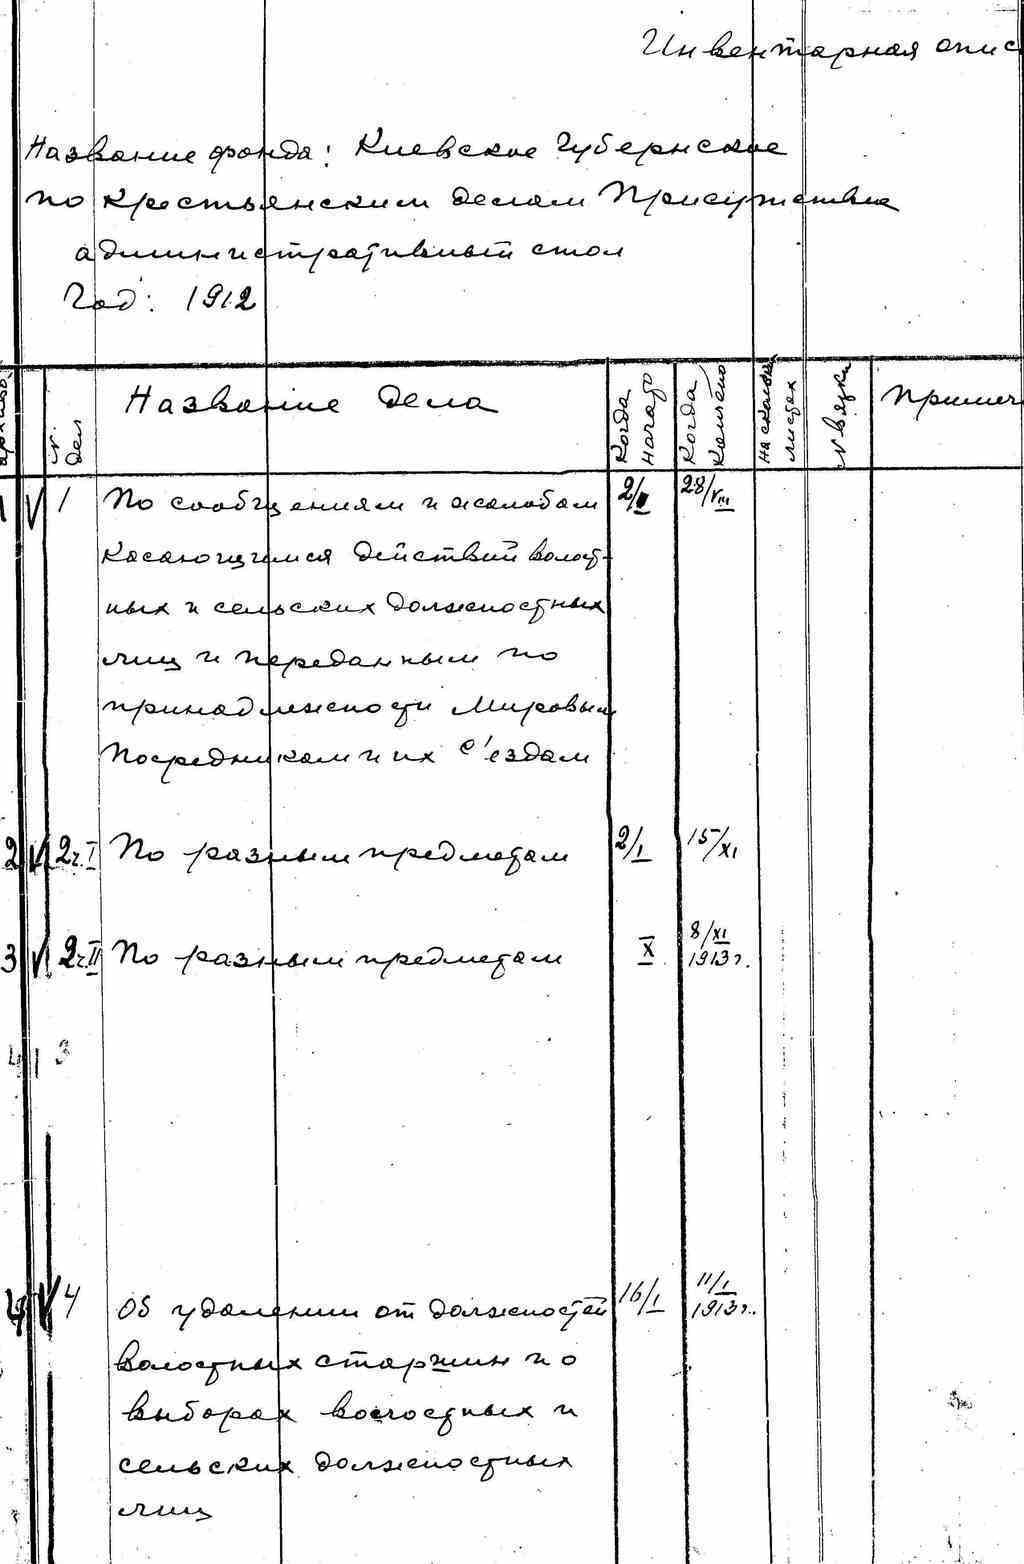 Инвентарная опис
Название фонда: Киевское Губернское
по крестьянским делам Присутствие
административный стол
Год: 1912
N. дел
Название дела
Когда начато
Когда кончено
на скольких листах
N вязки
Примеч
1 V 1 По сообщениям и жалобам 2/I 28/VIII
касающимся действий волост-
ных и сельских должностных
лиц и переданным по
принадлежности Мировым
Посредникам и их с'ездам
2 V 2ч.I По разным предметам 2/I 15/XI
3 V 2ч.II По разным предметам X 8/XI
1913г.
4 3
4 V 4 Об удалении от должностей 16/I 11/I
1913г.
волостных старшин и о
выборах волостных и
сельских должностных
лиц